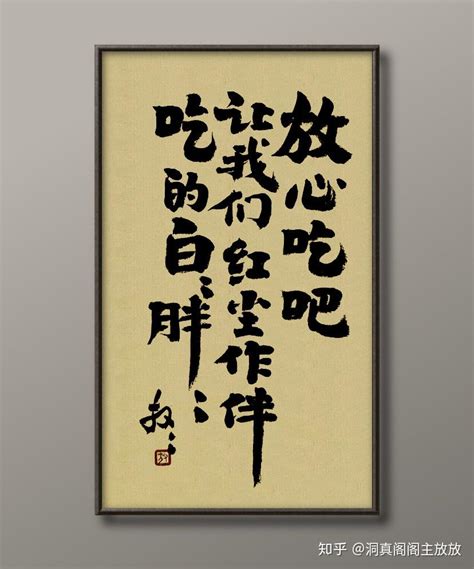 放心吃吧
让我们红尘作伴
吃的白〻胖〻
放〻
知乎 @洞真阁阁主放放